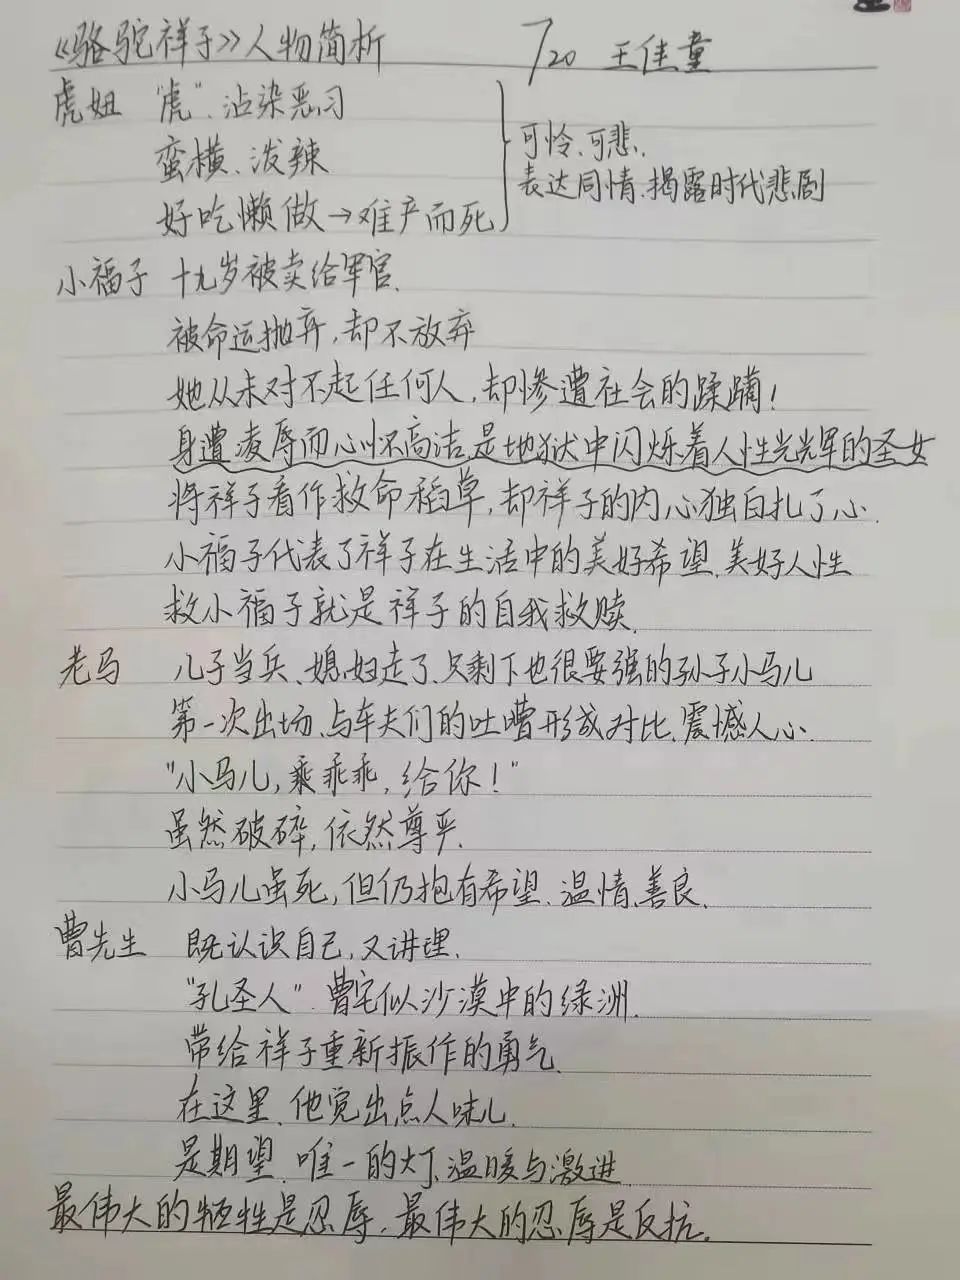 《骆驼祥子》人物简析 7/20 王佳童
虎妞 "虎"、沾染恶习
蛮横、泼辣
好吃懒做→难产而死
可怜、可悲、
表达同情、揭露时代悲剧
小福子 十九岁被卖给军官、
被命运抛弃,却不放弃
她从未对不起任何人,却惨遭社会的蹂躏!
身遭凌辱而心怀高洁,是地狱中闪烁着人性光辉的圣女
将祥子看作救命稻草,却祥子的内心独白扎了心、
小福子代表了祥子在生活中的美好希望、美好人性
救小福子就是祥子的自我救赎、
老马 儿子当兵、媳妇走了、只剩下也很要强的孙子小马儿
第一次出场、与车夫们的吐嘈形成对比、震撼人心、
"小马儿,乘乖乖,给你!"
虽然破碎,依然尊严、
小马儿虽死,但仍抱有希望、温情、善良、
曹先生 既认识自己,又讲理、
"孔圣人"、曹宅似沙漠中的绿洲、
带给祥子重新振作的勇气、
在这里、他觉出点人味儿、
是期望、唯一的灯、温暖与激进、
最伟大的牺牲是忍辱、最伟大的忍辱是反抗、